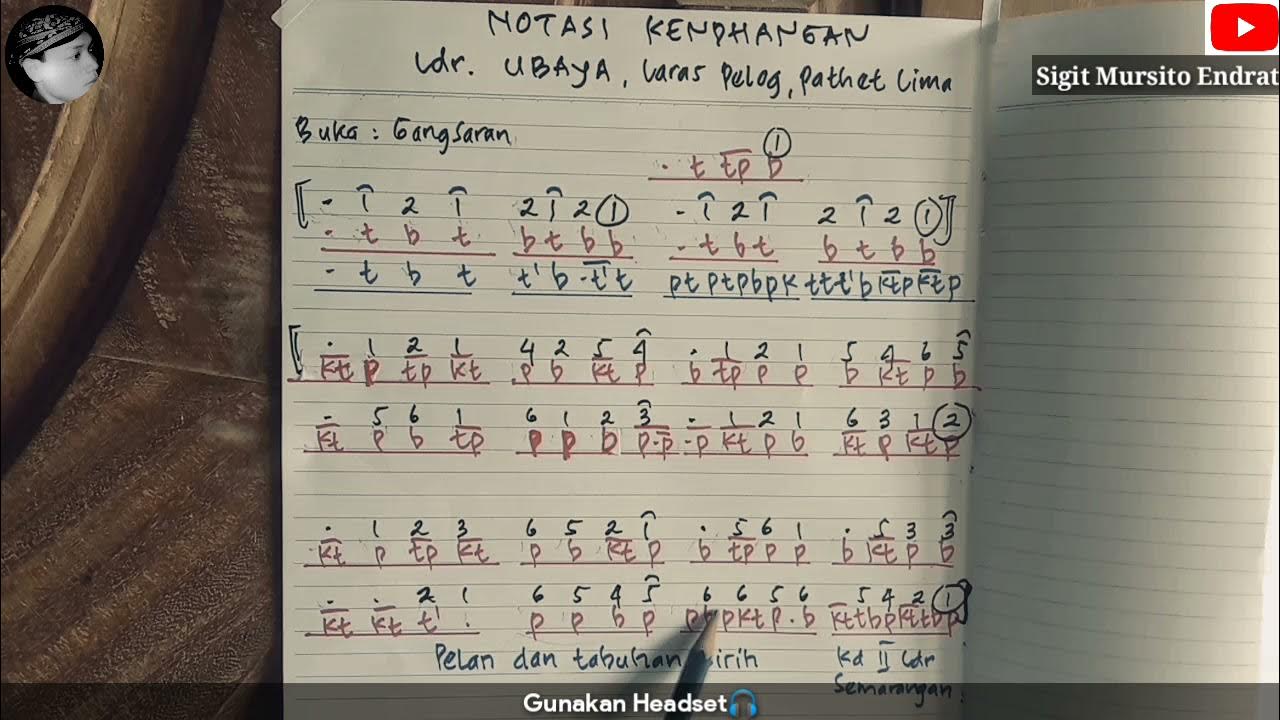 NOTASI KENDHANGAN
Ldr. UBAYA, Laras Pelog, Pathet Lima
Sigit Mursito Endrat
Buka : Gangsaran
1
. t tp b
[ - 1 2 1 2 1 2 1 - 1 2 1 2 1 2 1 ]
- t b t b t b b - t b t b t b b
- t b t t' b -t' t pt ptpbpk ttt'b ktp ktp
[ . 1 2 1 4 2 5 4 . 1 2 1 5 4 6 5
kt p tp kt p b kt p b tp p p b kt p b
- 5 6 1 6 1 2 3 - 1 2 1 6 3 1 2
kt p b tp p p b p-p -p kt p b kt p kt p
. 1 2 3 6 5 2 1 . 5 6 1 . 5 3 3
kt p tp kt p b kt p b tp p p b kt p b
. . 2 1 6 5 4 5 6 6 5 6 5 4 2 1 ]
kt kt t' . p p b p kt p . b kttbpkttbp
Pelan dan tabuhan
Kd II Ldr
Semarangan.
Gunakan Headset🎧